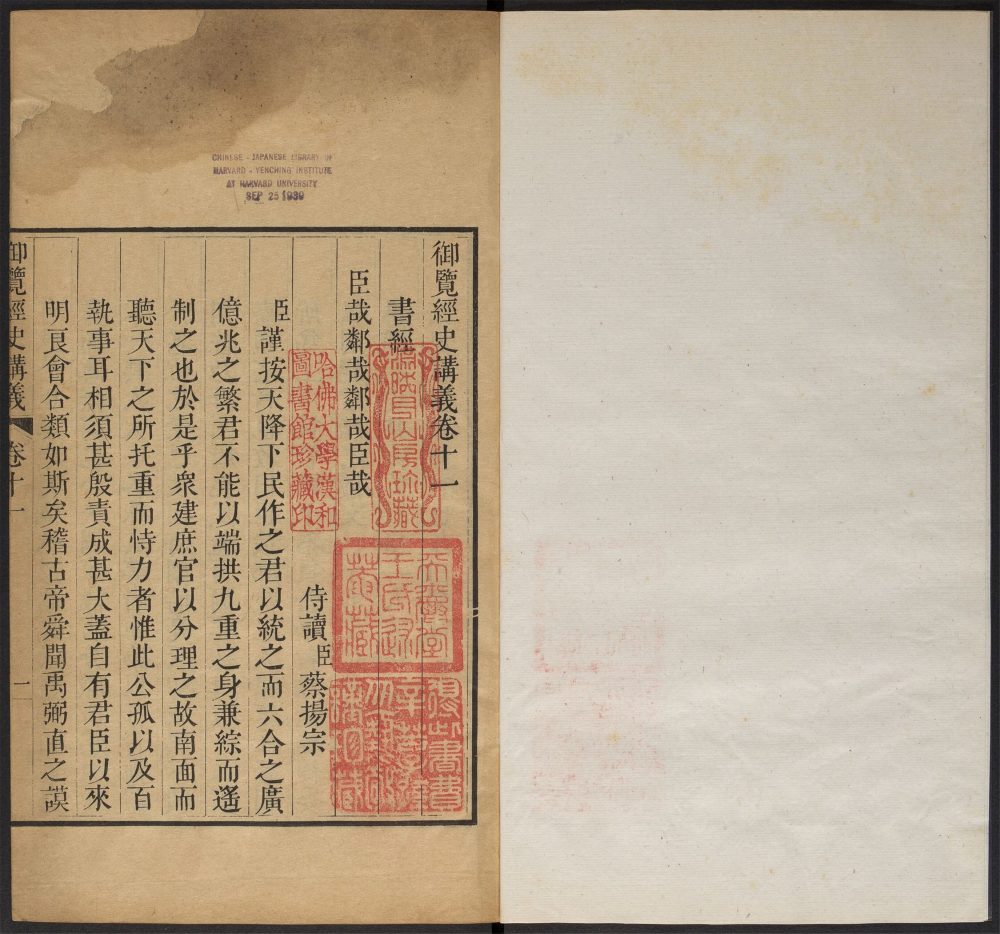 CHINESE - JAPANESE LIBRARY OF
HARVARD - YENCHING INSTITUTE
AT HARVARD UNIVERSITY
SEP 25 1939
御覽經史講義卷十一
書經
臣哉鄰哉鄰哉臣哉
侍讀臣蔡揚宗
臣謹按天降下民作之君以統之而六合之廣
億兆之繁君不能以端拱九重之身兼綜而遙
制之也於是乎眾建庶官以分理之故南面而
聽天下之所托重而恃力者惟此公孤以及百
執事耳相須甚殷責成甚大蓋自有君臣以來
明良會合類如斯矣稽古帝舜聞禹弼直之謨
御覽經史講義 卷十一 一
哈佛大學漢和
圖書館珍藏印
得此書費
辛苦後